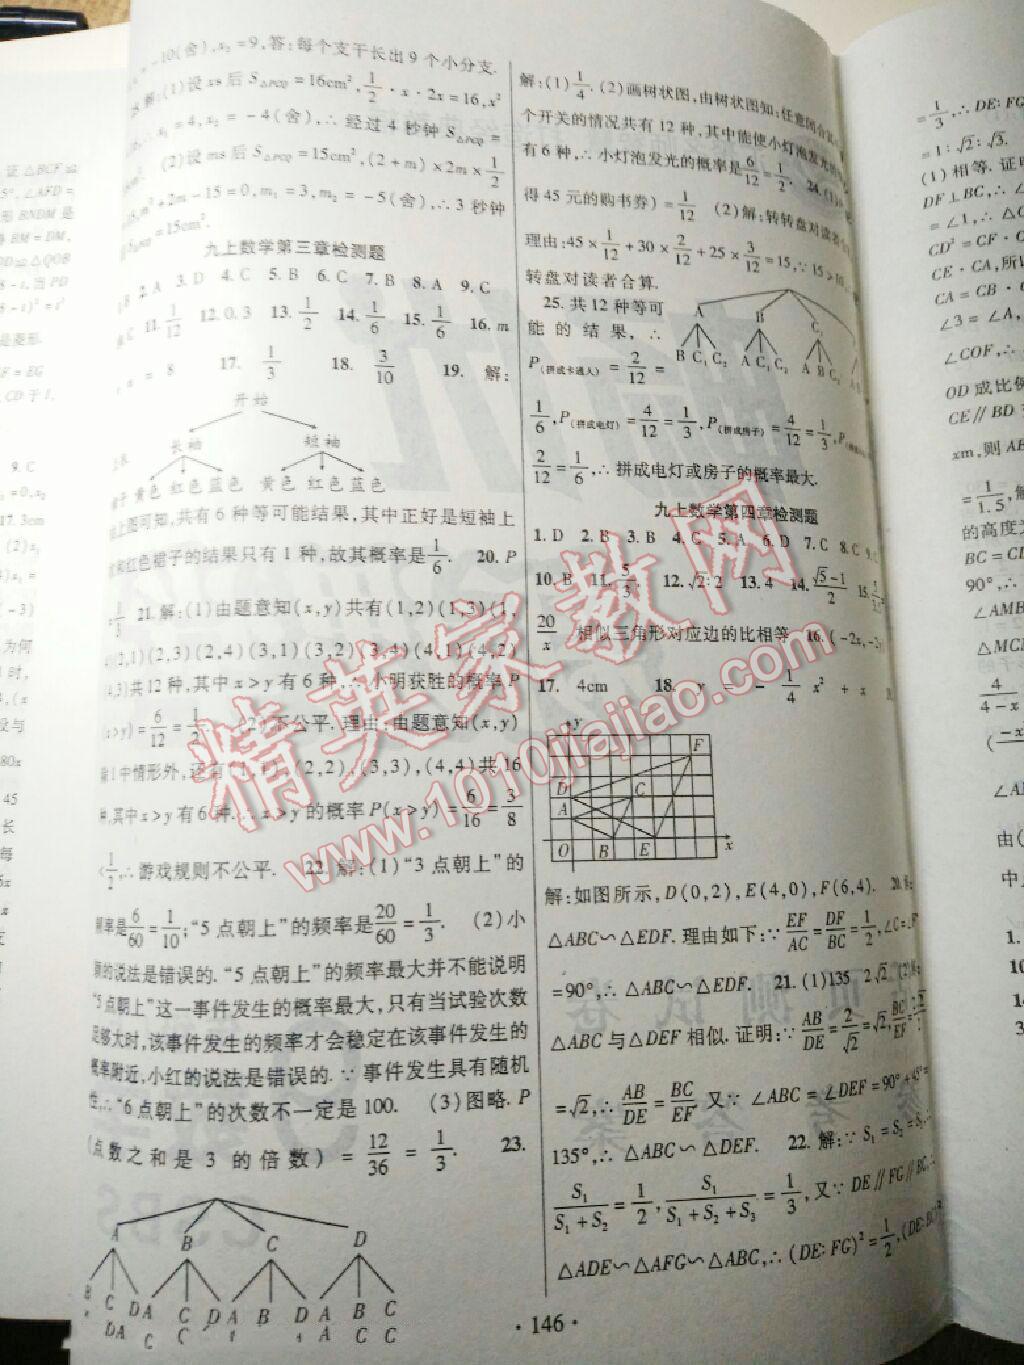 -10(舍),x₂=9,答:每个支干长出9个小分支.
解:(1)设xs后S△PCQ=16cm²,1/2·x·2x=16,x²
x₁=4,x₂=-4(舍),∴经过4秒钟S△PCQ=
(2)设ms后S△PCQ=15cm²,(2+m)×2m×1/2
m²+2m-15=0,m₁=3,m₂=-5(舍),∴3秒钟
=15cm².
九上数学第三章检测题
B 2.A 3.D 4.C 5.B 6.C 7.B 8.A 9.C
C 11.1/12 12.0.3 13.1/2 14.1/6 15.1/6 16.m
=8 17.1/3 18.3/10 19.解:
开始
长袖 短袖
黄色 红色 蓝色 黄色 红色 蓝色
上图可知,共有6种等可能结果,其中正好是短袖上
和红色裙子的结果只有1种,故其概率是1/6. 20.P
=1/3 21.解:(1)由题意知(x,y)共有(1,2)(1,3)(1,
4)(2,1)(2,3)(2,4)(3,1)(3,2)(3,4)(4,1)(4,2)
(4,3)共12种,其中x>y有6种,∴小明获胜的概率P
(x>y)=6/12=1/2. (2)不公平.理由:由题意知(x,y)
除1中情形外,还有(1,1),(2,2),(3,3),(4,4)共16
种,其中x>y有6种.∴x>y的概率P(x>y)=6/16=3/8
<1/2,∴游戏规则不公平. 22.解:(1)“3点朝上”的
频率是6/60=1/10;“5点朝上”的频率是20/60=1/3. (2)小
颖的说法是错误的.“5点朝上”的频率最大并不能说明
“5点朝上”这一事件发生的概率最大,只有当试验次数
足够大时,该事件发生的频率才会稳定在该事件发生的
概率附近,小红的说法是错误的.∵事件发生具有随机
性,∴“6点朝上”的次数不一定是100. (3)图略.P
(点数之和是3的倍数)=12/36=1/3. 23.
A B C D
B C D A C D A B D A B C
解:(1)1/4. (2)画树状图,由树状图知:任意闭合
个开关的情况共有12种,其中能使小灯泡发光的
有6种,∴小灯泡发光的概率是6/12=1/2. 24.(1)
得45元的购书券)=1/12 (2)解:转转盘对读者合
理由:45×1/12+30×2/12+25×3/12=15,∵15>10
转盘对读者合算.
25.共12种等可
能的结果,∴
A B C₁
B C₁ C₂ A C₁ C₂ A B C₂
P(拼成卡通人)=2/12=
1/6,P(拼成电灯)=4/12=1/3,P(拼成房子)=4/12=1/3,P
2/12=1/6,∴拼成电灯或房子的概率最大.
九上数学第四章检测题
1.D 2.B 3.B 4.C 5.A 6.D 7.C 8.C 9.C
10.B 11.5/3. 12.√2:2 13.4 14.(√5-1)/2 15.
20/x 相似三角形对应边的比相等 16.(-2x,-2y)
17. 4cm 18. y = -1/4 x² + x
y
F
D
A C
O B E x
解:如图所示,D(0,2),E(4,0),F(6,4). 20.
△ABC∽△EDF.理由如下:∵EF/AC=DF/BC=1/2,∠C=∠F
=90°,∴△ABC∽△EDF. 21.(1)135 2√2 (2)
△ABC与△DEF相似.证明:∵AB/DE=2/√2=√2,BC/EF=
=√2,∴AB/DE=BC/EF.又∵∠ABC=∠DEF=90°+45°=
135°,∴△ABC∽△DEF. 22.解:∵S₁=S₂=S₃,∴
S₁/(S₁+S₂)=1/2,S₁/(S₁+S₂+S₃)=1/3,又∵DE//FG//BC,∴
△ADE∽△AFG∽△ABC,∴(DE:FG)²=1/2,(DE:BC)²
·146·
精英家教网
www.1010jiajiao.com
证△BCF≌
5°,∠AFD=
形BNDM是
得BM=DM.
△QOB
当PD
是菱形.
=EG
,CD于I,
9.C
17.3cm
(2)x₁
为何
时,
设与
80x
45
长
每
1/3,∴DE:FG
=1:√2:√3.
(1)相等.证明
DF⊥BC,∴
=∠1,∴△
CD²=CF·C
CE·CA,所以
CA=CB·
∠3=∠A,
∠COF,∴
OD或比例
CE//BD
xm,则AB
=1/1.5,解
的高度为
BC=CD
90°,∴△
∠AMB
△MCD
4/(4-x)
∠A
由(
中点